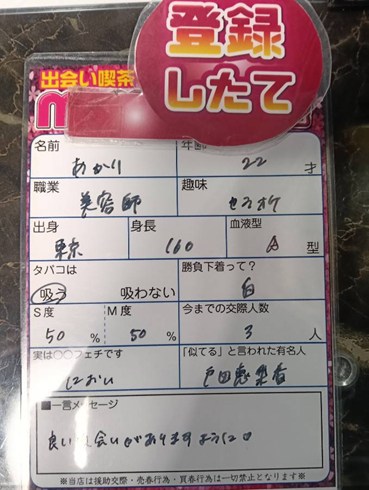 登録
したて
出会い喫茶
名前 あかり 年齢 22 才
職業 美容師 趣味 カラオケ
出身 東京 身長 160 血液型 A 型
タバコは 吸う 吸わない 勝負下着って? 白
S度 50 % M度 50 % 今までの交際人数 3 人
実は○○フェチです におい 「似てる」と言われた有名人 戸田恵梨香
■一言メッセージ
良い出会いがありますように
※当店は援助交際・売春行為・買春行為は一切禁止となります※